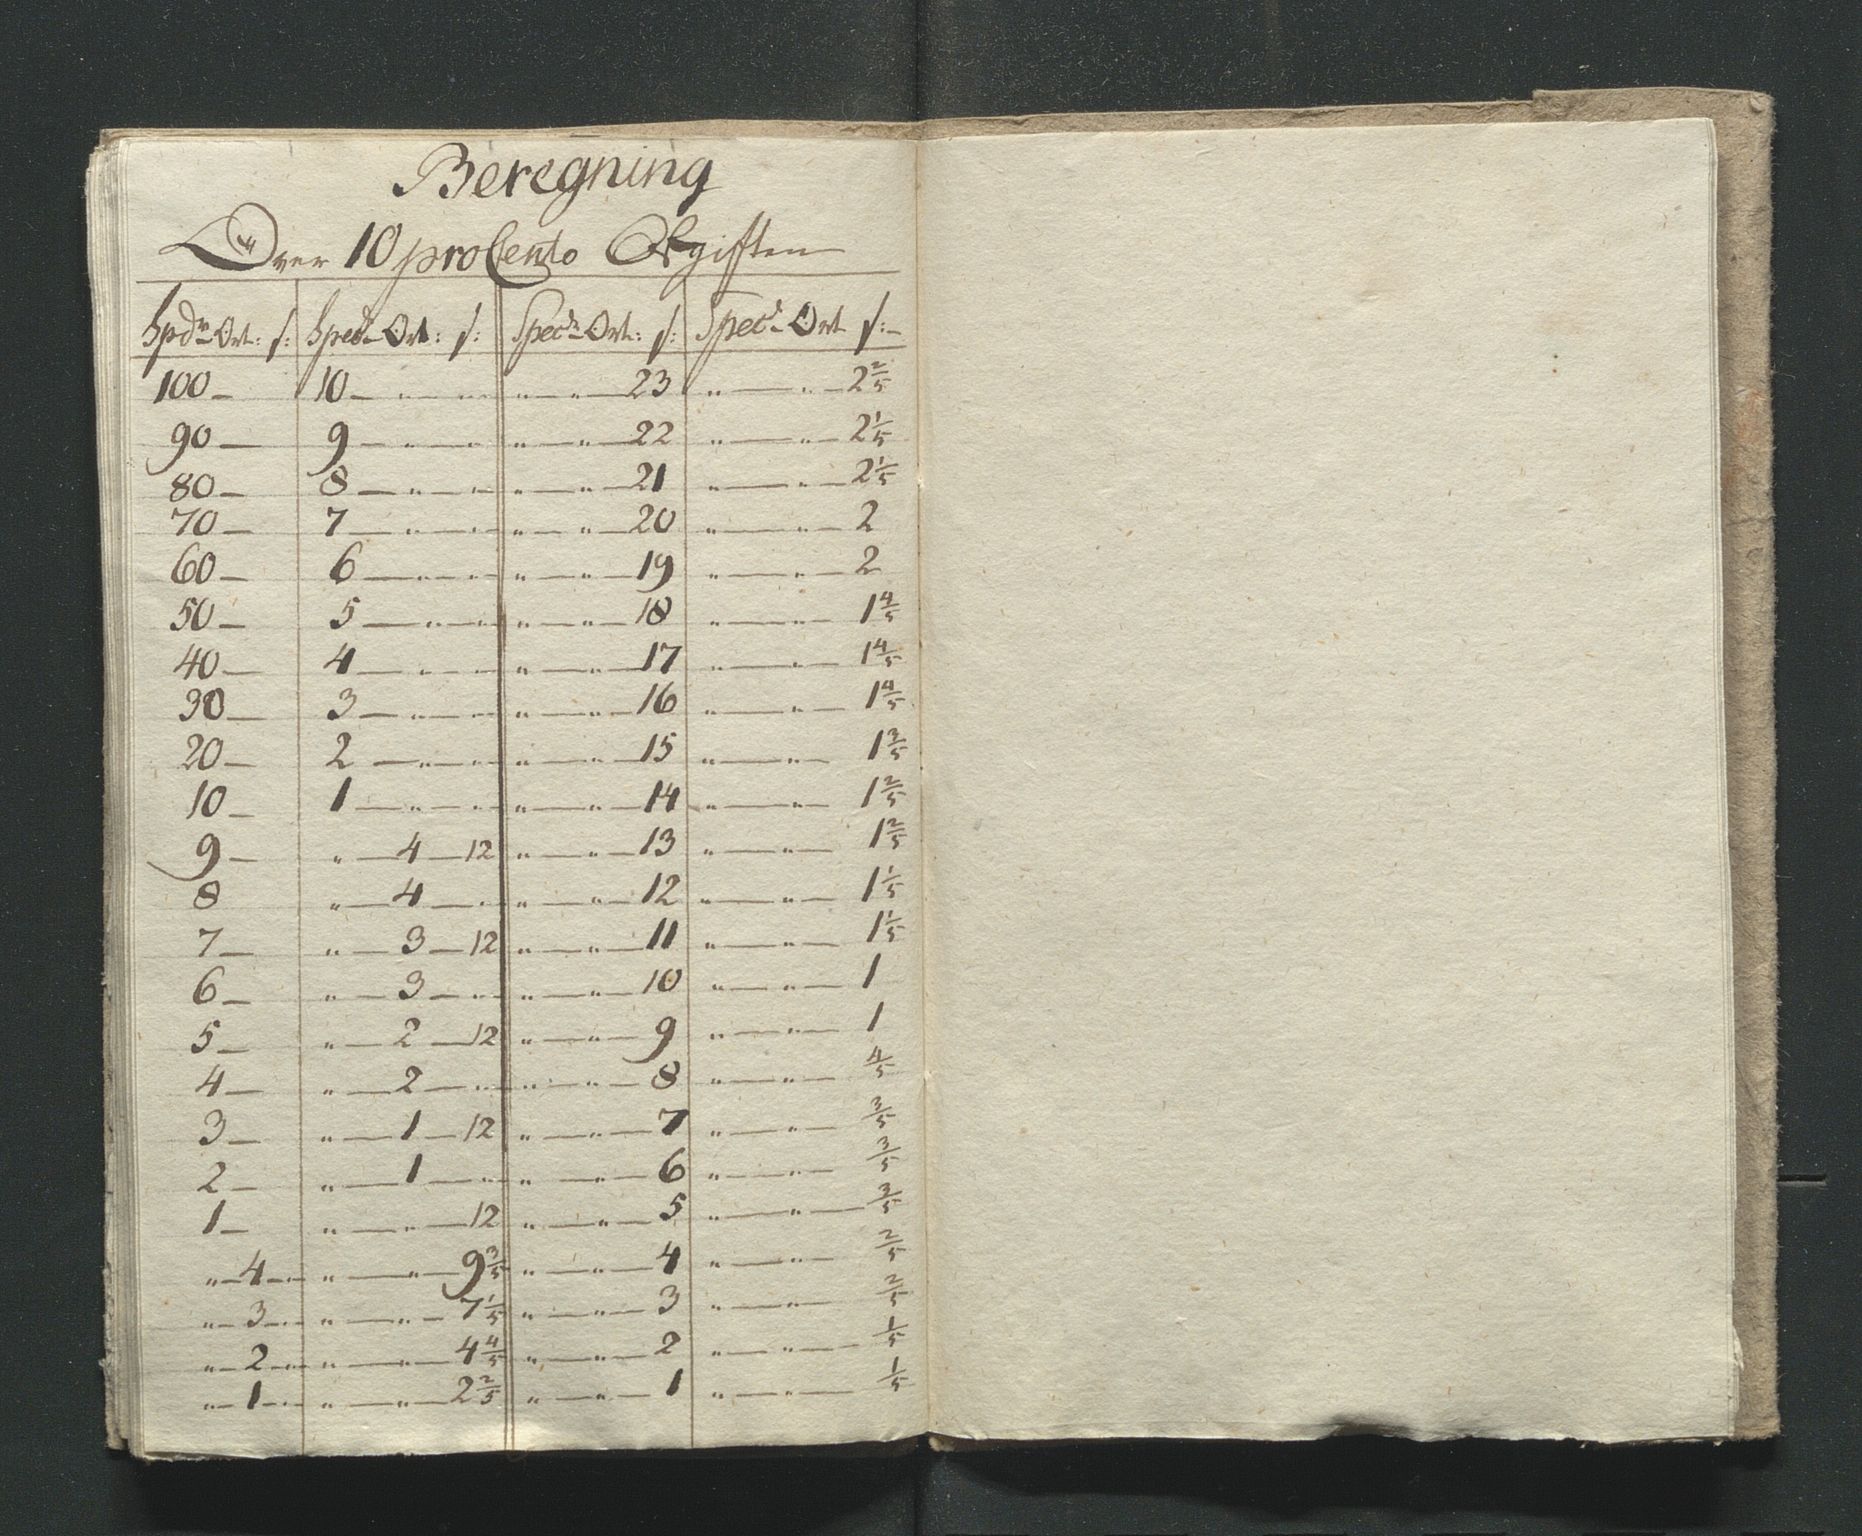 Beregning
Over 10 pro Cento Afgiften
Spdr Ort: s: Specd Ort: s: Specd Ort: s: Specd Ort s:
100 — 10 — „ — „ „ — „ — 23 „ — „ — 2 2/5
90 — 9 — „ — „ „ — „ — 22 „ — „ — 2 1/5
80 — 8 — „ — „ „ — „ — 21 „ — „ — 2 1/5
70 — 7 — „ — „ „ — „ — 20 „ — „ — 2
60 — 6 — „ — „ „ — „ — 19 „ — „ — 2
50 — 5 — „ — „ „ — „ — 18 „ — „ — 1 4/5
40 — 4 — „ — „ „ — „ — 17 „ — „ — 1 4/5
30 — 3 — „ — „ „ — „ — 16 „ — „ — 1 4/5
20 — 2 — „ — „ „ — „ — 15 „ — „ — 1 3/5
10 — 1 — „ — „ „ — „ — 14 „ — „ — 1 2/5
9 — „ — 4 — 12 „ — „ — 13 „ — „ — 1 2/5
8 „ — 4 — „ „ — „ — 12 „ — „ — 1 1/5
7 — „ — 3 — 12 „ — „ — 11 „ — „ — 1 1/5
6 — „ — 3 — „ „ — „ — 10 „ — „ — 1
5 — „ — 2 — 12 „ — „ — 9 „ — „ — 1
4 — „ — 2 — „ „ — „ — 8 „ — „ — 4/5
3 — „ — 1 — 12 „ — „ — 7 „ — „ — 3/5
2 — „ — 1 — „ „ — „ — 6 „ — „ — 3/5
1 — „ — „ — 12 „ — „ — 5 „ — „ — 3/5
„ — 4 — „ „ — „ — 9 3/5 „ — „ — 4 „ — „ — 2/5
„ — 3 — „ „ — „ — 7 1/5 „ — „ — 3 „ — „ — 2/5
„ — 2 — „ „ — „ — 4 4/5 „ — „ — 2 „ — „ — 1/5
„ — 1 — „ „ — „ — 2 2/5 „ — „ — 1 „ — „ — 1/5